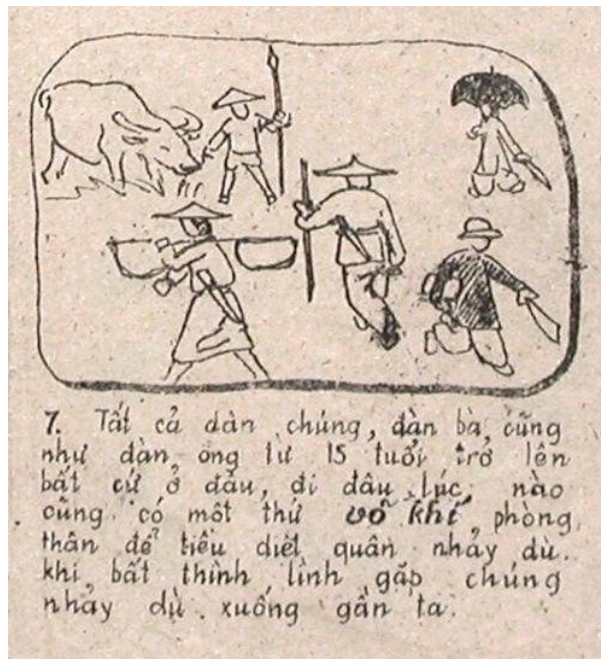 7. Tất cả dân chúng, đàn bà, cũng
như đàn ông từ 15 tuổi trở lên
bất cứ ở đâu, đi đâu, lúc nào
cũng có một thứ võ khí phòng
thân để tiêu diệt quân nhảy dù.
khi bất thình lình gặp chúng
nhảy dù xuống gần ta.